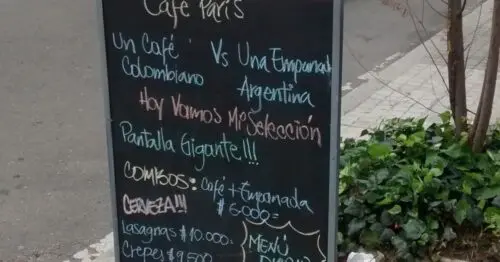 Café París
Un Café Vs Una Empanada
Colombiano Argentina
Hoy Vamos Mi Selección
Pantalla Gigante!!!
COMBOS: Café + Empanada
CERVEZA!!! $6000=
Lasagnas $10.000=
MENÚ
Crepes $9.500